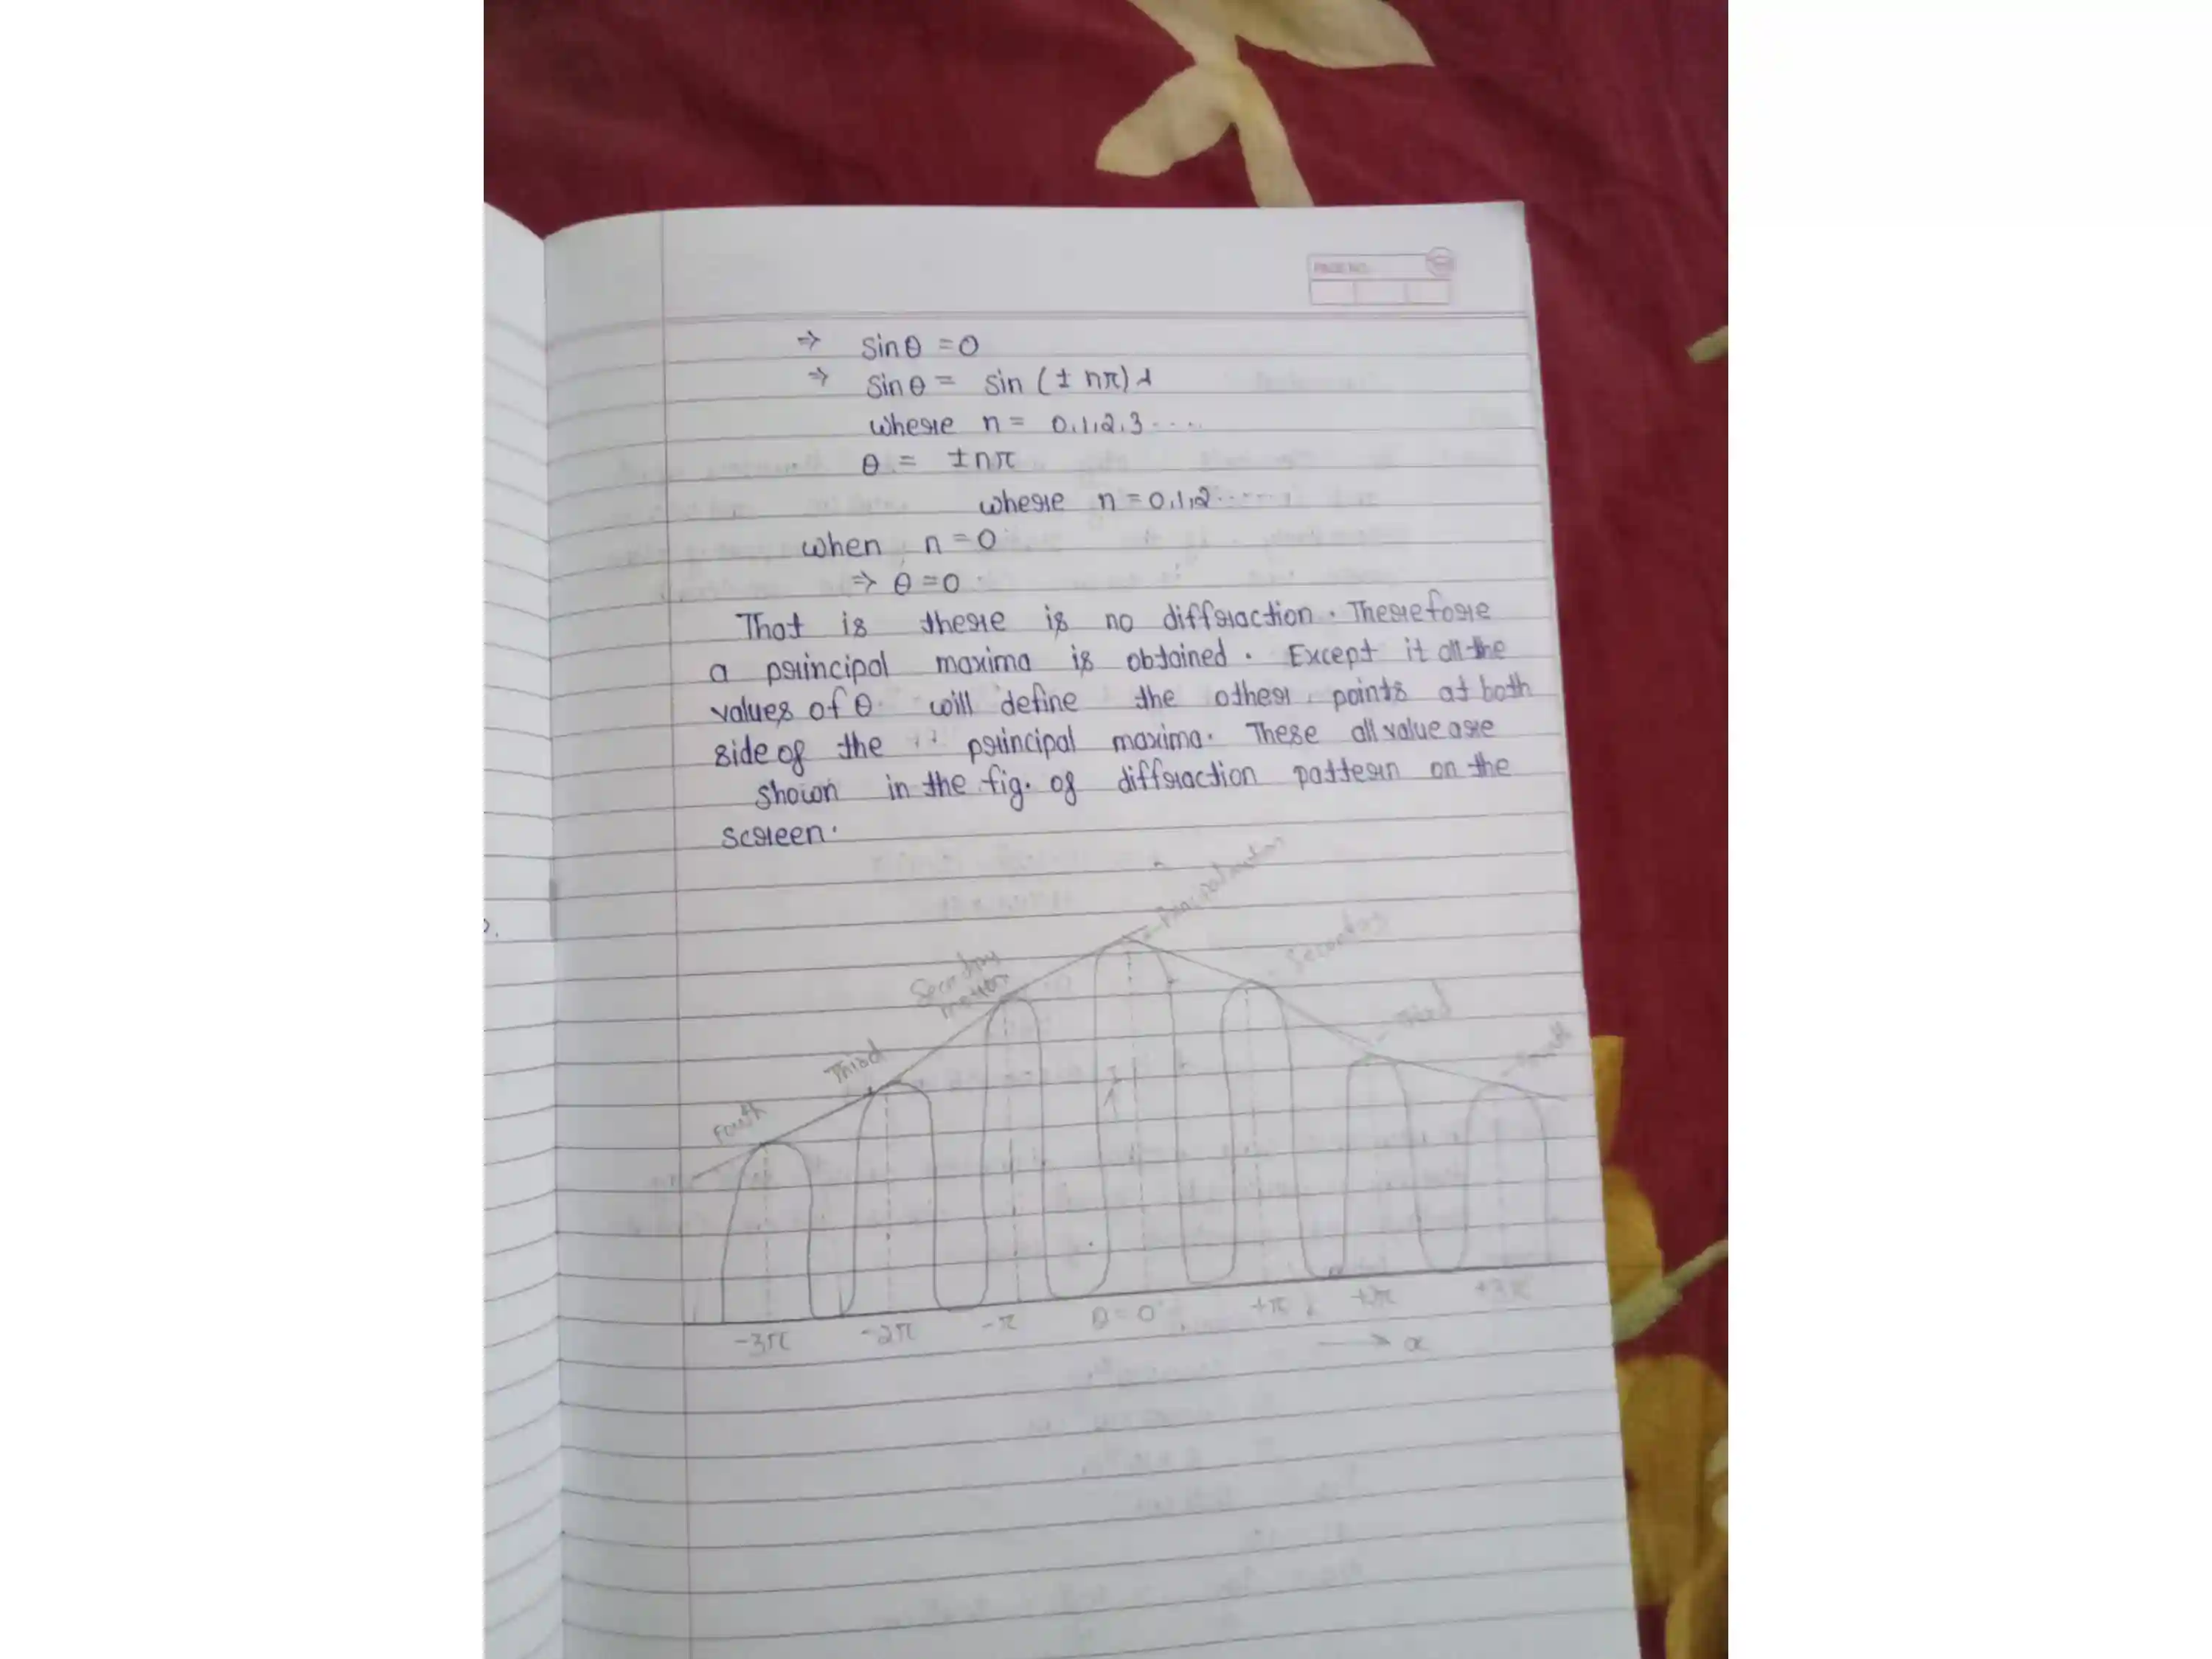 PAGE NO.
⇒ Sinθ = 0
⇒ Sinθ = sin (± nπ)
where n = 0,1,2,3....
θ = ±nπ
where n = 0,1,2.......
when n = 0
⇒ θ = 0
That is there is no diffraction. Therefore
a principal maxima is obtained. Except it all the
values of θ will define the other points at both
side of the principal maxima. These all value are
shown in the fig. of diffraction pattern on the
screen.
Principal
Secondary
Secondry
Third
Third
Fourth
Fouth
I
-3π -2π -π θ = 0 +π +2π +3π
→ α